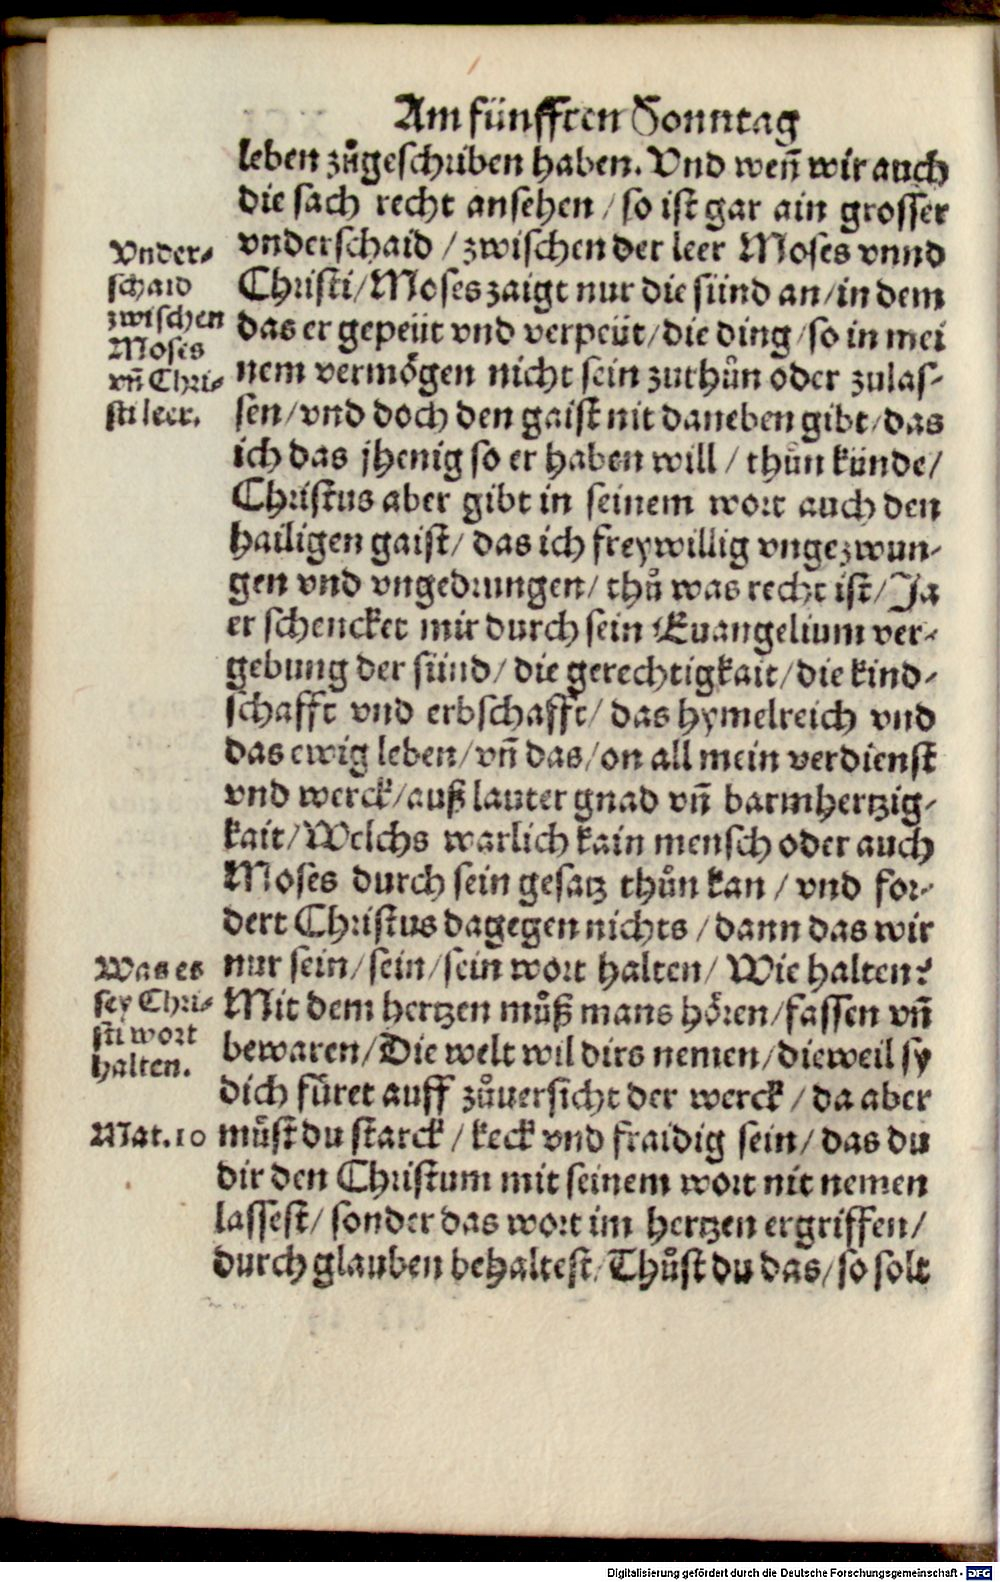 Am fünfften Sonntag
leben zůgeschriben haben. Vnd weñ wir auch
die sach recht ansehen / so ist gar ain grosser
vnderschaid / zwischen der leer Moses vnnd
Christi / Moses zaigt nur die sünd an / in dem
das er gepeüt vnd verpeüt / die ding / so in mei
nem vermögen nicht sein zuthůn oder zulas-
sen / vnd doch den gaist nit daneben gibt / das
ich das jhenig so er haben will / thůn künde /
Christus aber gibt in seinem wort auch den
hailigen gaist / das ich freywillig vngezwun-
gen vnd vngedrungen / thů was recht ist / Ja
er schencket mir durch sein Euangelium ver-
gebung der sünd / die gerechtigkait / die kind-
schafft vnd erbschafft / das hymelreich vnd
das ewig leben / vñ das / on all mein verdienst
vnd werck / auß lauter gnad vñ barmhertzig-
kait / Welchs warlich kain mensch oder auch
Moses durch sein gesatz thůn kan / vnd for-
dert Christus dagegen nichts / dann das wir
nur sein / sein / sein wort halten / Wie halten?
Mit dem hertzen můß mans hören / fassen vñ
bewaren / Die welt wil dirs nemen / dieweil sy
dich füret auff zůuersicht der werck / da aber
můst du starck / keck vnd fraidig sein / das du
dir den Christum mit seinem wort nit nemen
lassest / sonder das wort im hertzen ergriffen /
durch glauben behaltest / Thůst du das / so solt
Vnder-
schaid
zwischen
Moses
vñ Chri-
sti leer.
Was es
sey Chri-
sti wort
halten.
Mat. 10
Digitalisierung gefördert durch die Deutsche Forschungsgemeinschaft - DFG